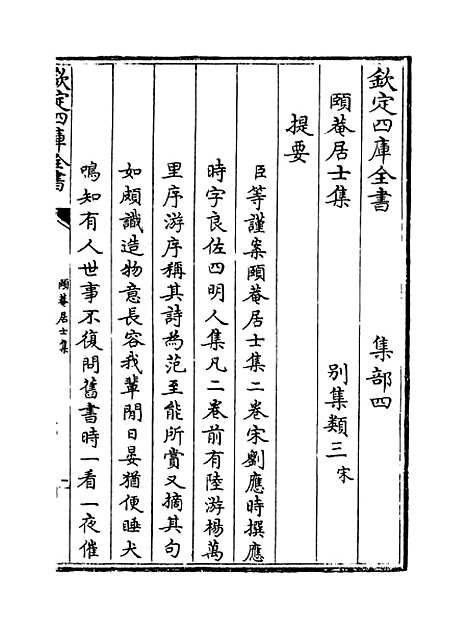 欽定四庫全書　　集部四
頤菴居士集　　別集類三宋
提要
臣等謹案頤菴居士集二卷宋劉應時撰應
時字良佐四明人集凡二卷前有陸游楊萬
里序游序稱其詩為范至能所賞又摘其句
如頗識造物意長容我輩閒日晏猶便睡犬
鳴知有人世事不復問舊書時一看一夜催
欽定四庫全書
頤菴居士集
一